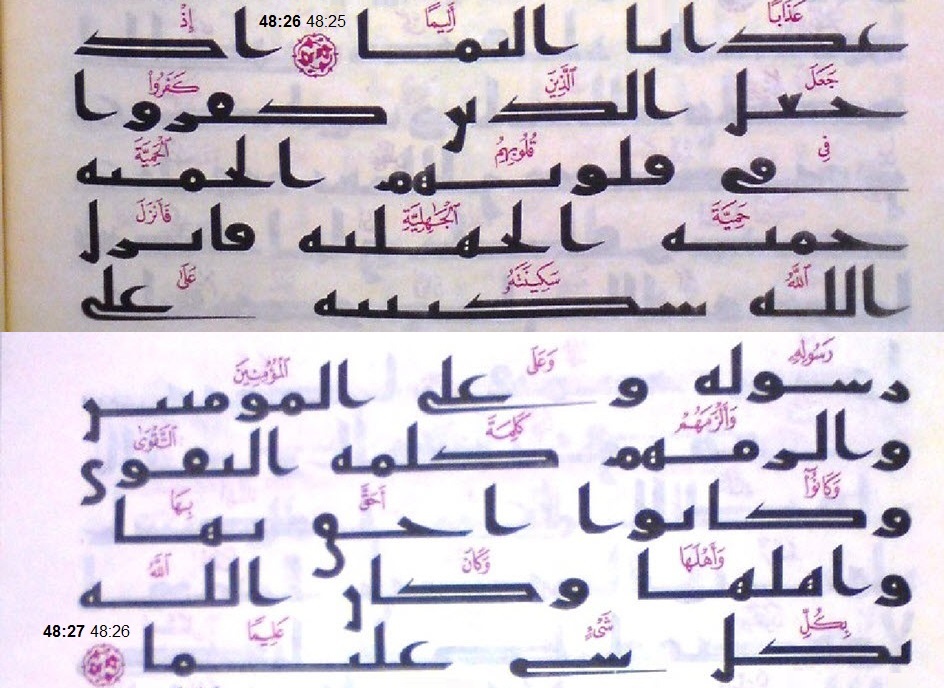 عَذَابًا أَلِيمًا 48:26 48:25 إِذْ
عذابا اليما اذ
جَعَلَ ٱلَّذِينَ كَفَرُوا۟
جعل الذين كفروا
فِى قُلُوبِهِمُ ٱلْحَمِيَّةَ
في قلوبهم الحميه
حَمِيَّةَ ٱلْجَـٰهِلِيَّةِ فَأَنزَلَ
حميه الجهليه فانزل
ٱللَّهُ سَكِينَتَهُۥ عَلَىٰ
الله سكينته على
رَسُولِهِۦ وَعَلَى ٱلْمُؤْمِنِينَ
رسوله و على المومنين
وَأَلْزَمَهُمْ كَلِمَةَ ٱلتَّقْوَىٰ
والزمهم كلمه التقوى
وَكَانُوٓا۟ أَحَقَّ بِهَا
وكانوا احق بها
وَأَهْلَهَا وَكَانَ ٱللَّهُ
واهلها وكان الله
بِكُلِّ شَىْءٍ عَلِيمًا 48:27 48:26
بكل شي عليما